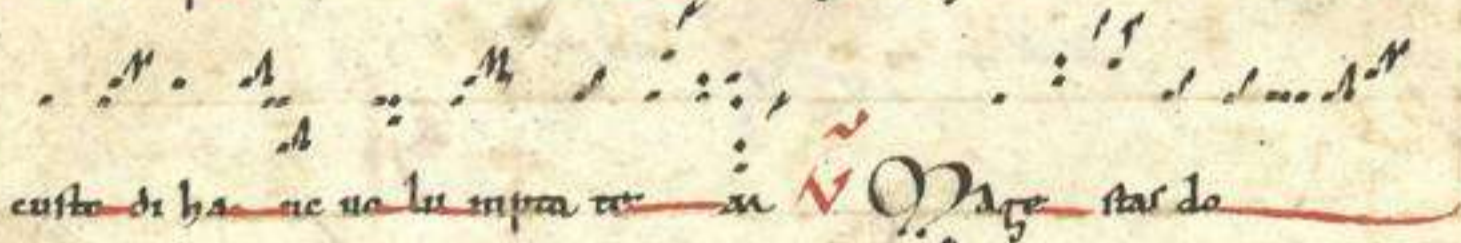 custo di ha nc uo lu mpta te m V Mage stas do